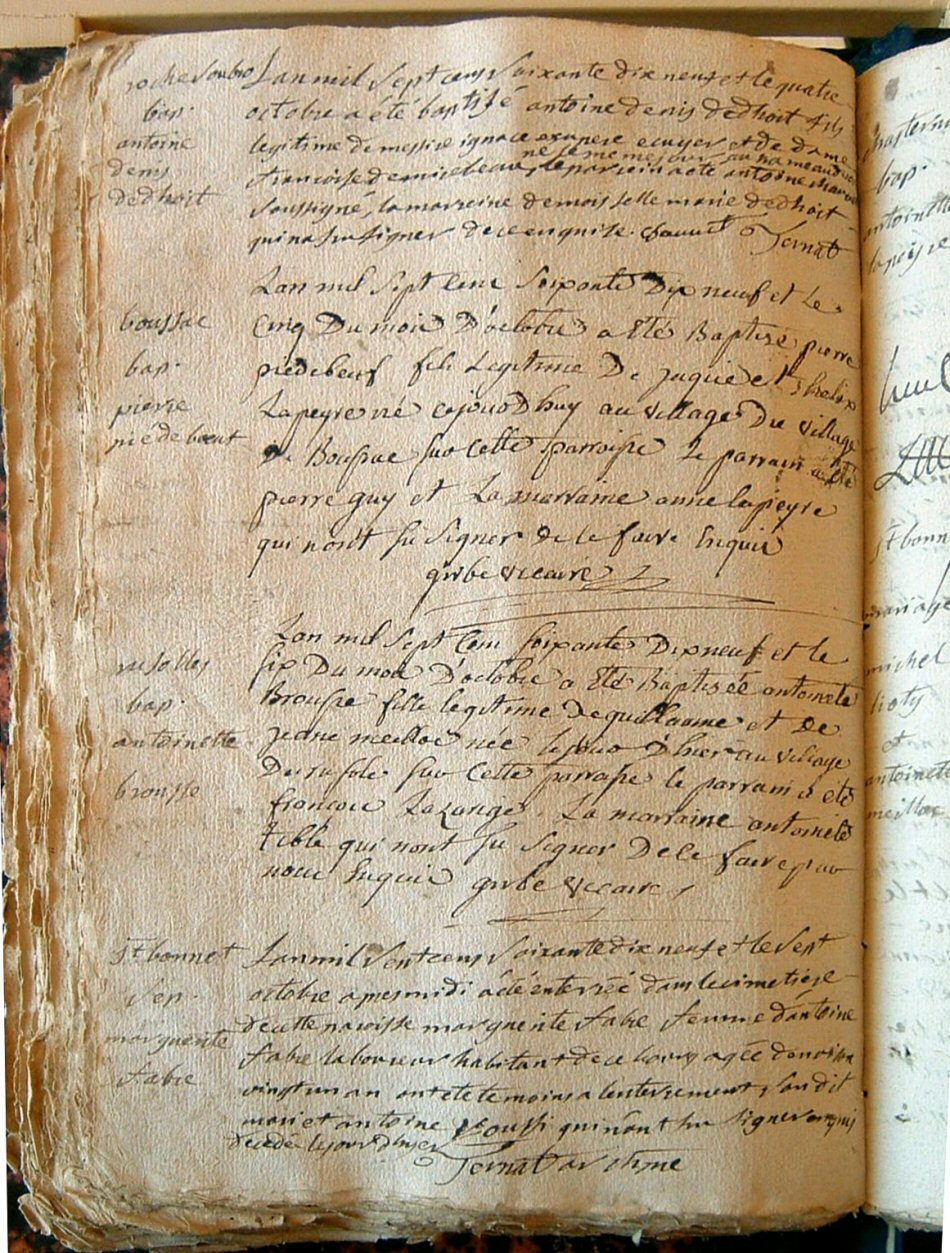 roche soubro
bap.
antoine
denis
dedhoit
Lan mil Sept cens Soixante dix neuf et le quatre
octobre a été baptisé antoine denis dedhoit fils
legitime de messire ignace exupere ecuyer et de dame
francoise de mirebeau, né le meme jour au hameau
le parrain a été antoine
soussigné, la marreine demoiselle marie dedhoit
qui na su signer de ce enquise. Ternat
boussac
bap.
pierre
pié de boeut
Lan mil Sept Cens Soixante Dix neuf et Le
Cinq Du mois D'octobre a Eté Baptisé pierre
piedebeuf fils Legitime De juquie et
Lapeyre né cejourdhuy au village Du village
De Boussac sur Cette parroisse Le parrain a été
pierre guy et La marraine anne lapeyre
qui nont su signer De le faire Enquis
girbe vicaire
rusolles
bap.
antoinette
brousse
Lan mil Sept Cens soixante Dixneuf et le
six Du mois D'octobre a Eté Baptisée antoinete
Brousse fille legitime De guillaume et De
jeane meilloc née le jour d'hier au village
De rusole sur Cette parroisse le parrain a été
françois Lazange. La marraine antoinete
tible qui nont su signer De le faire par
nous Enquis girbe vicaire
st bonnet
Sep.
marguerite
fabre
Lan mil Sept cens Soixante dix neuf et le Sept
octobre apres midi a été enterrée dans le cimetiere
de cette paroisse marguerite fabre femme d'antoine
fabre laboureur habitant de ce bourg agée denviron
vingt un an ont été temoins a lenterrement, son dit
mari et antoine qui nont su signer enquis
decedé le jour d'hier
Ternat
bap.
antoinette
lapeyre
st bonn
mariage
michel
lioty
et
antoinete
meilloc